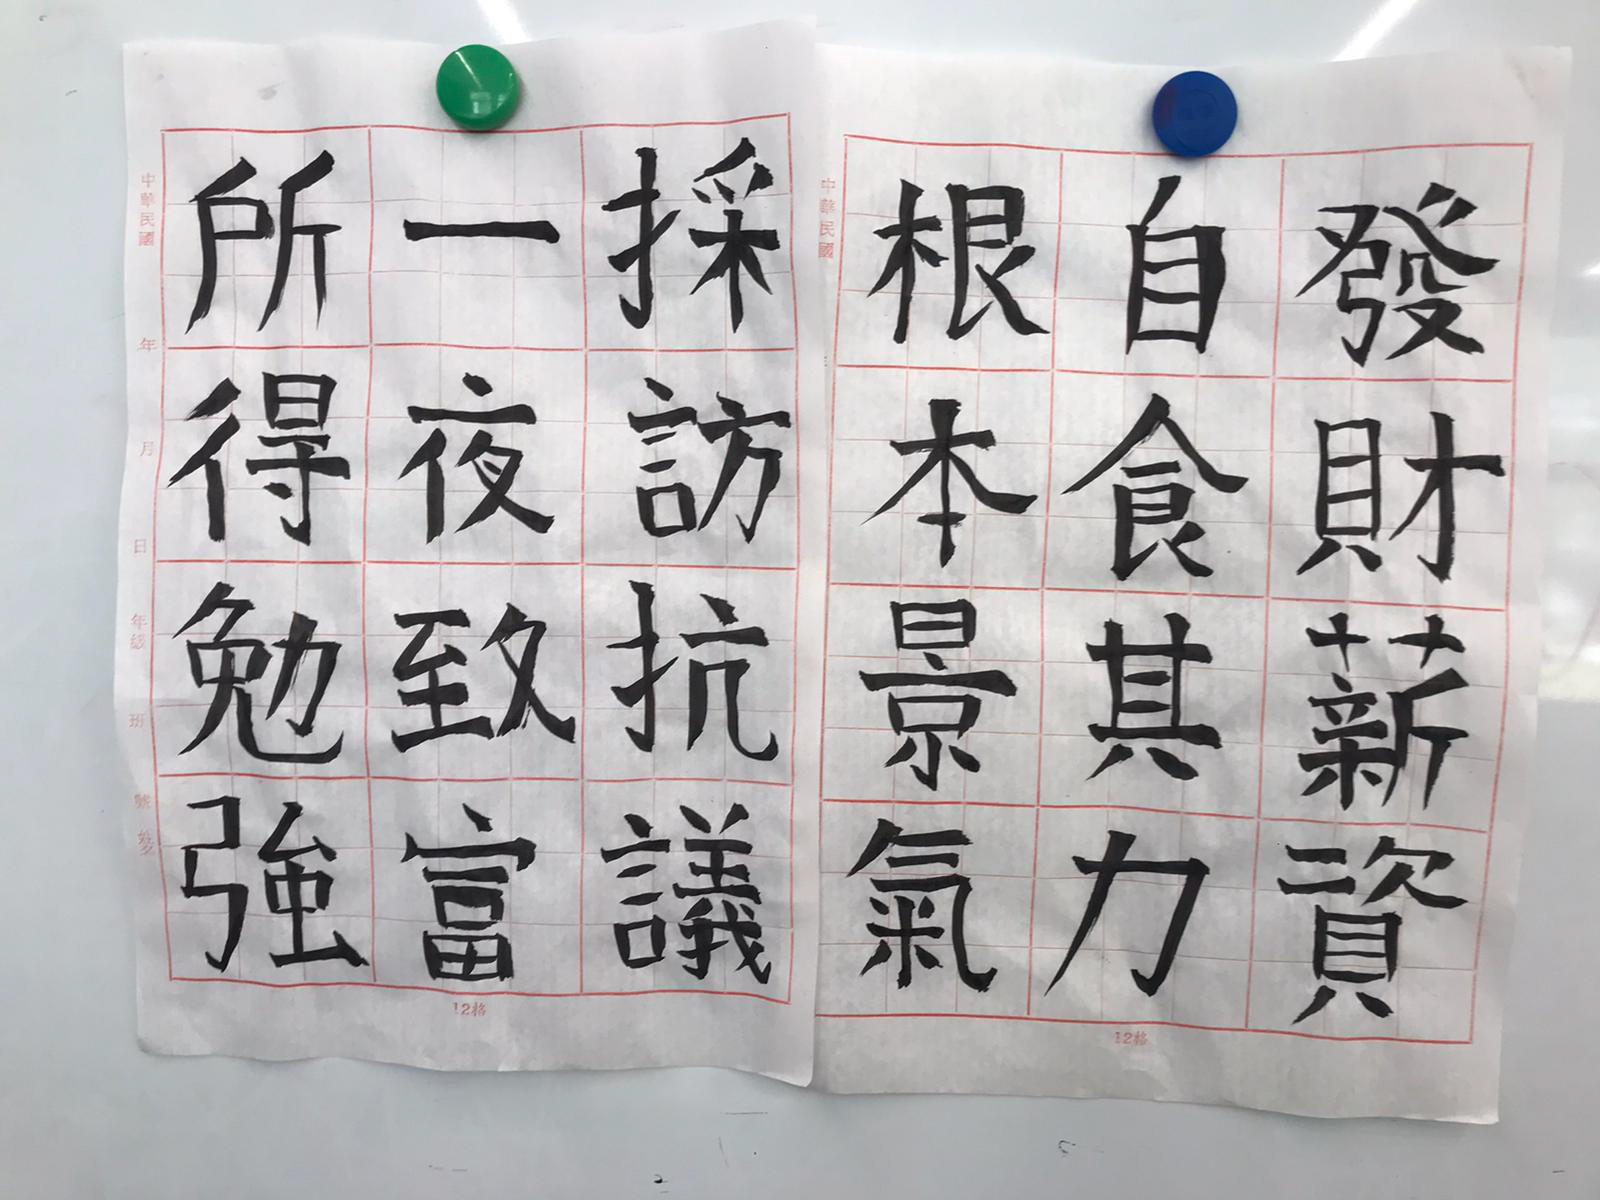 發財薪資
自食其力
根本景氣
中華民國
採訪抗議
一夜致富
所得勉強
中華民國 年 月 日 年級 班 號 姓名
12格
12格